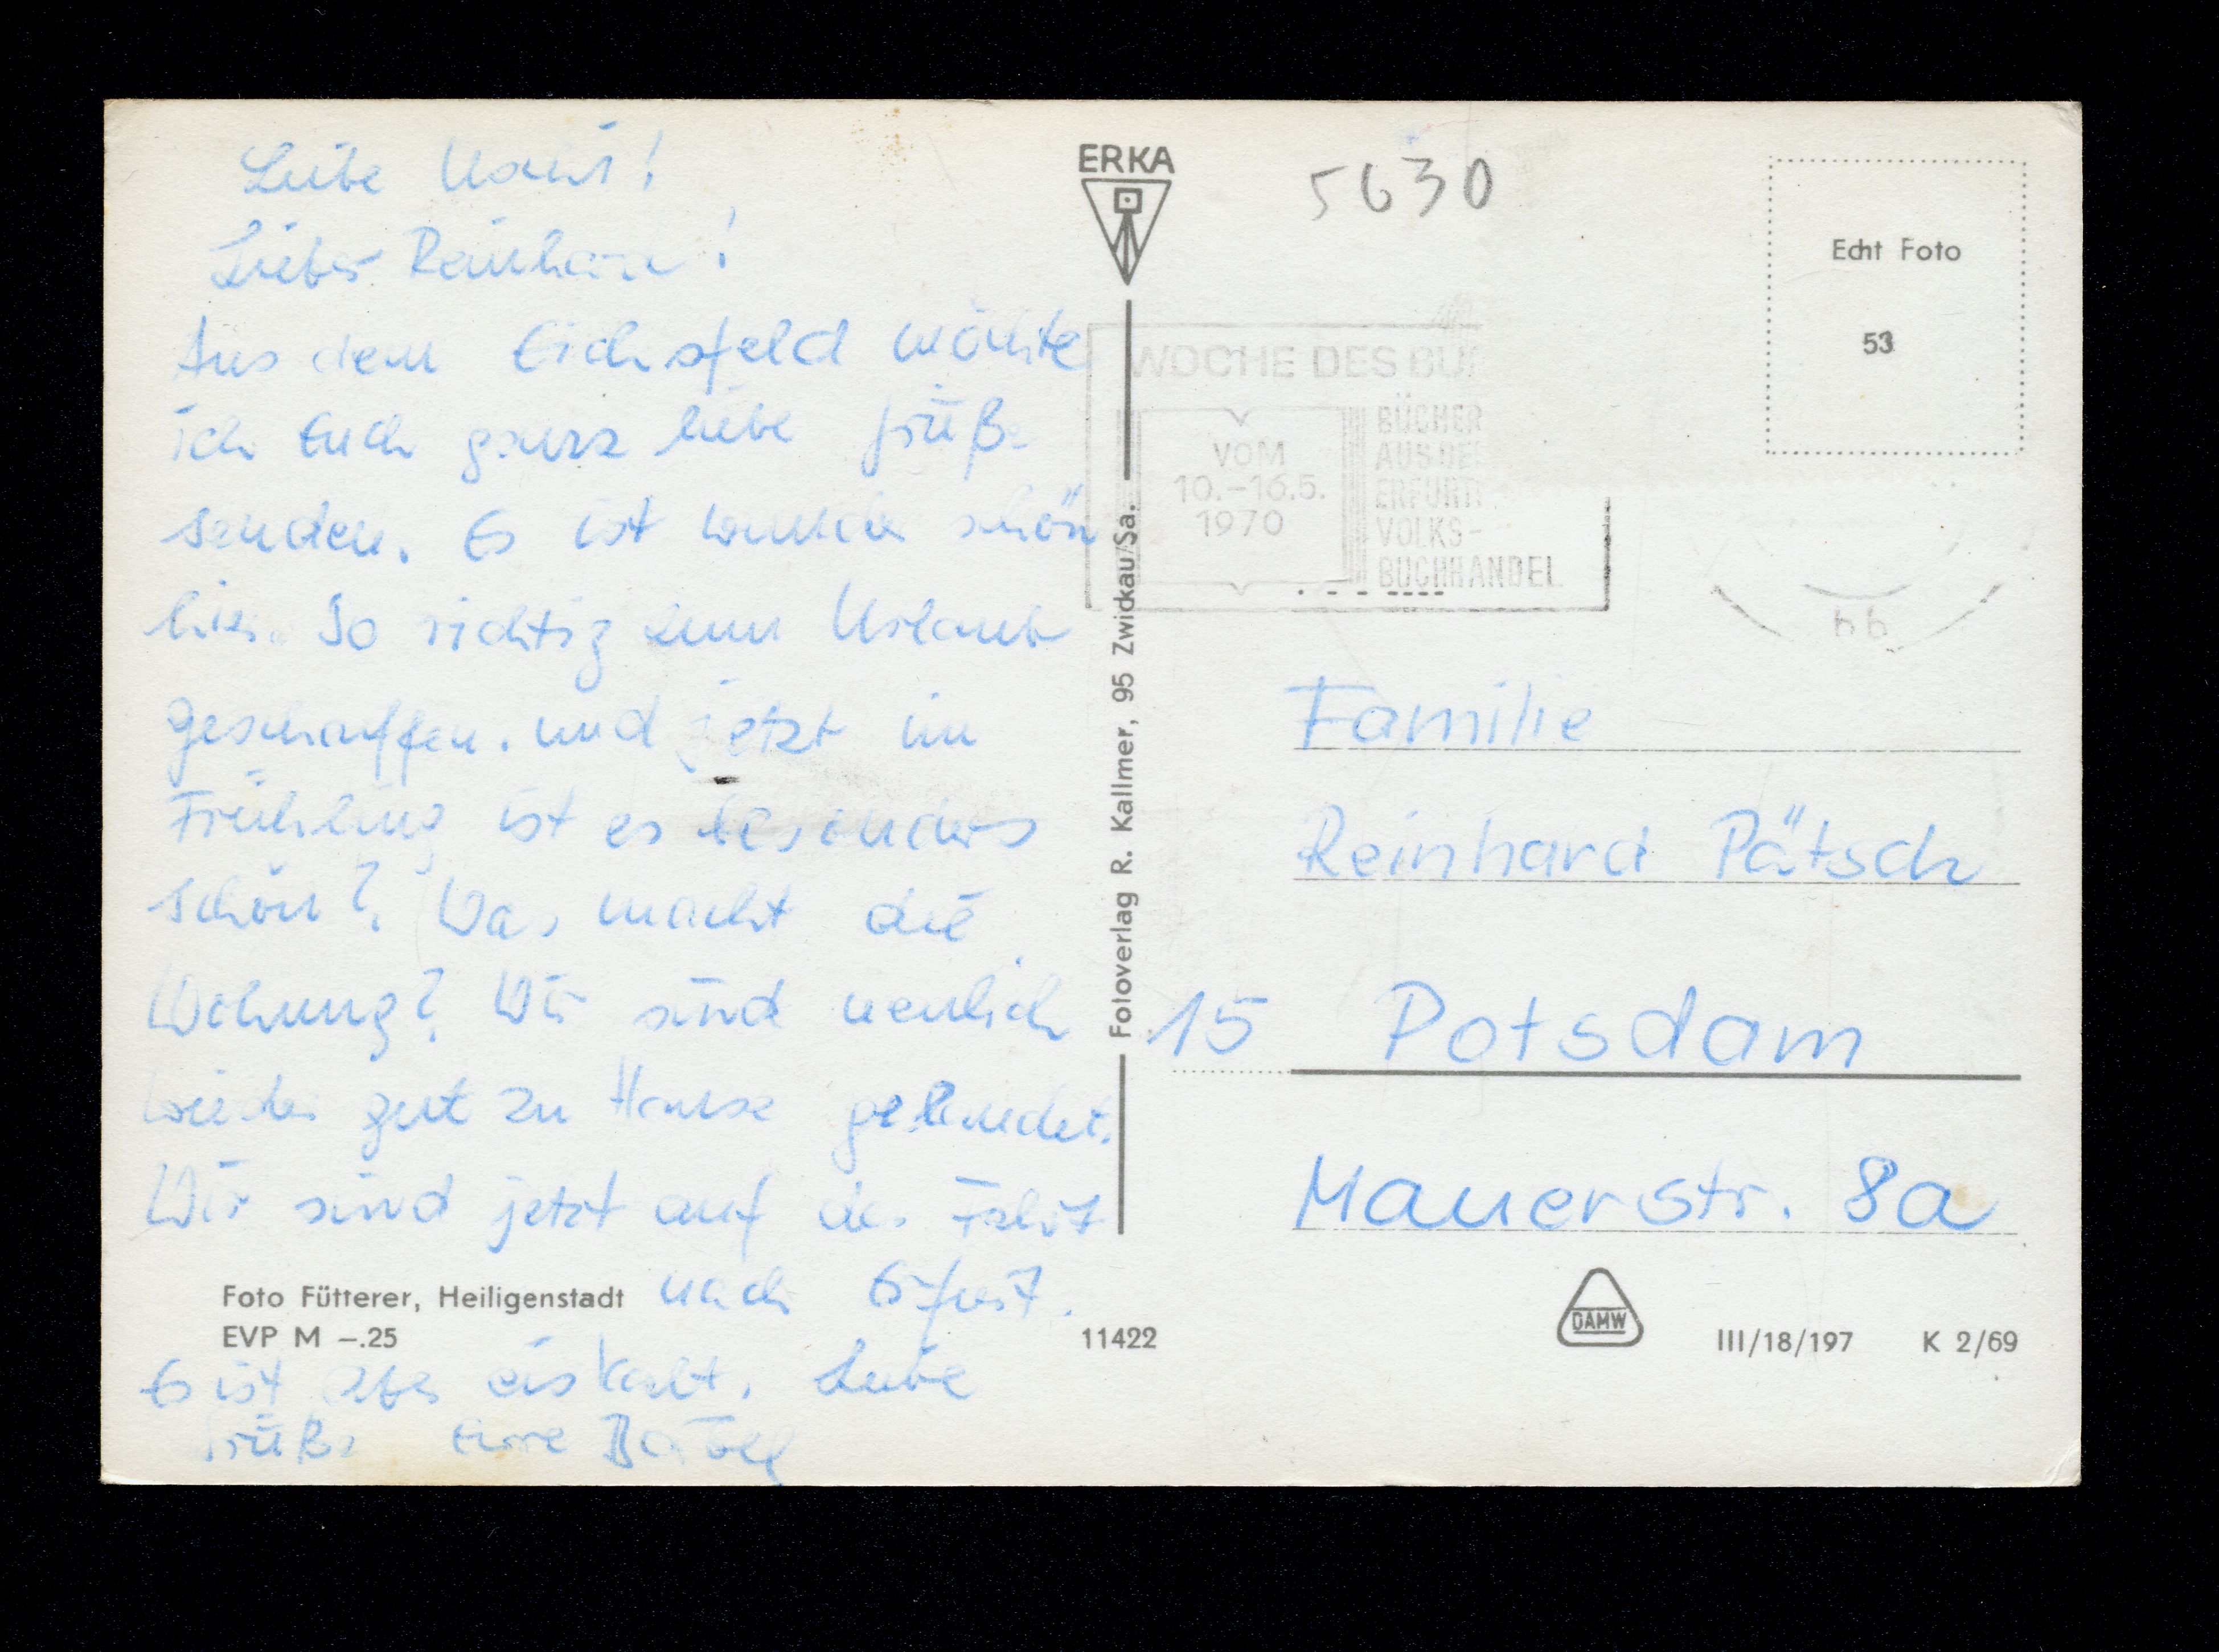 Liebe
Lieber Reinhard!
Aus dem Eichsfeld möchte
ich Euch ganz liebe Grüße
senden. Es ist wunder schön
hier. So richtig zum Urlaub
geschaffen. und jetzt im
Frühling ist es besonders
schön? Was macht die
Wohnung? Wir sind neulich
wieder gut zu Hause gelandet.
Wir sind jetzt auf der Fahrt
nach Erfurt.
Es ist aber eiskalt. Liebe
Grüße Eure Bärbel
Foto Fütterer, Heiligenstadt
EVP M –.25
11422
ERKA
Fotoverlag R. Kallmer, 95 Zwickau/Sa.
5630
WOCHE DES BU
VOM
10.–16.5.
1970
BÜCHER
AUS DE
ERFURT
VOLKS-
BUCHHANDEL
Echt Foto
53
Familie
Reinhard Pätsch
15 Potsdam
Mauerstr. 8a
DAMW
III/18/197 K 2/69